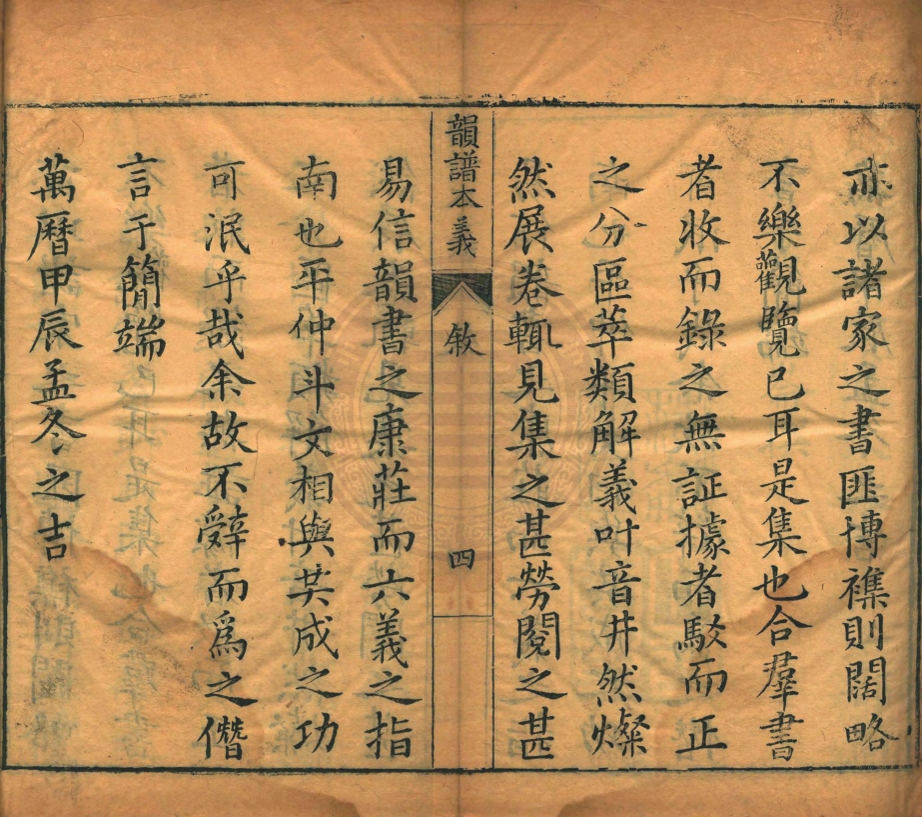 亦以諸家之書匪博襍則闊略
不樂觀覽已耳是集也合羣書
者收而錄之無証據者駁而正
之分區萃類解義叶音井然燦
然展卷輒見集之甚勞閱之甚
韻譜本義
敘
四
易信韻書之康莊而六義之指
南也平仲斗文相與共成之功
可泯乎哉余故不辤而爲之僭
言于簡端
萬曆甲辰孟冬之吉